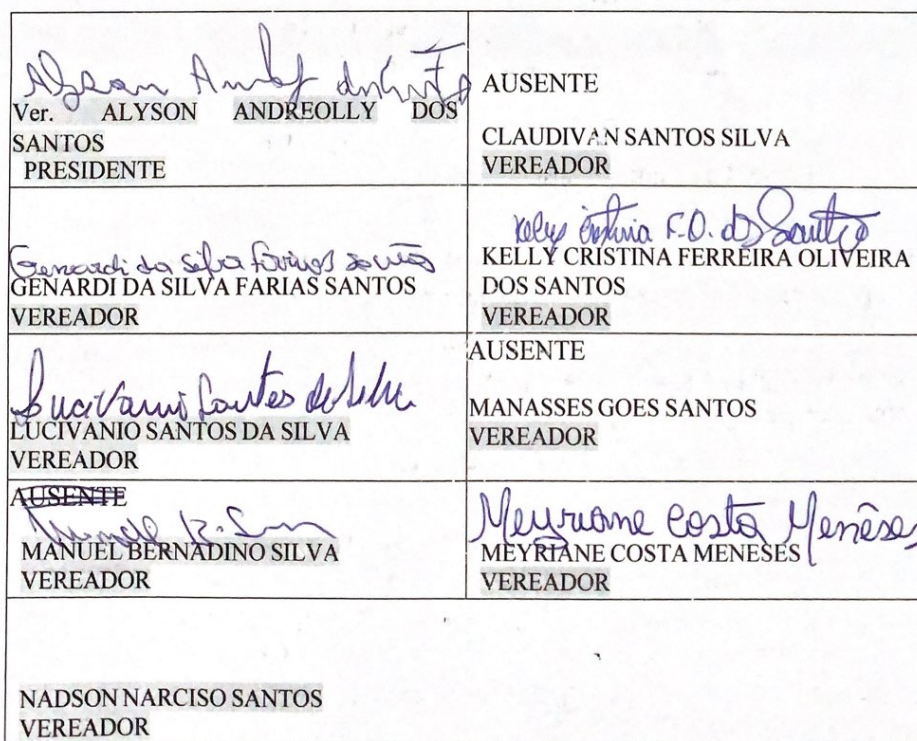 Alyson Andref dos Santos
Ver. ALYSON ANDREOLLY DOS
SANTOS
PRESIDENTE
AUSENTE
CLAUDIVAN SANTOS SILVA
VEREADOR
Genardi da Silva Farias Santos
GENARDI DA SILVA FARIAS SANTOS
VEREADOR
Kelly Cristina F.O. dos Santos
KELLY CRISTINA FERREIRA OLIVEIRA
DOS SANTOS
VEREADOR
Lucivanio Santos da Silva
LUCIVANIO SANTOS DA SILVA
VEREADOR
AUSENTE
MANASSES GOES SANTOS
VEREADOR
AUSENTE
MANUEL BERNADINO SILVA
VEREADOR
Meyriane Costa Menêses
MEYRIANE COSTA MENESES
VEREADOR
NADSON NARCISO SANTOS
VEREADOR